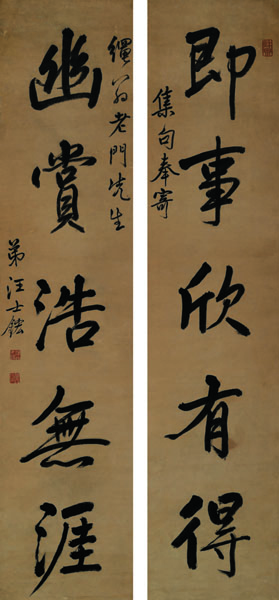 即事欣有得
集句奉寄
幽賞浩無涯
老門先生
弟汪士鋐